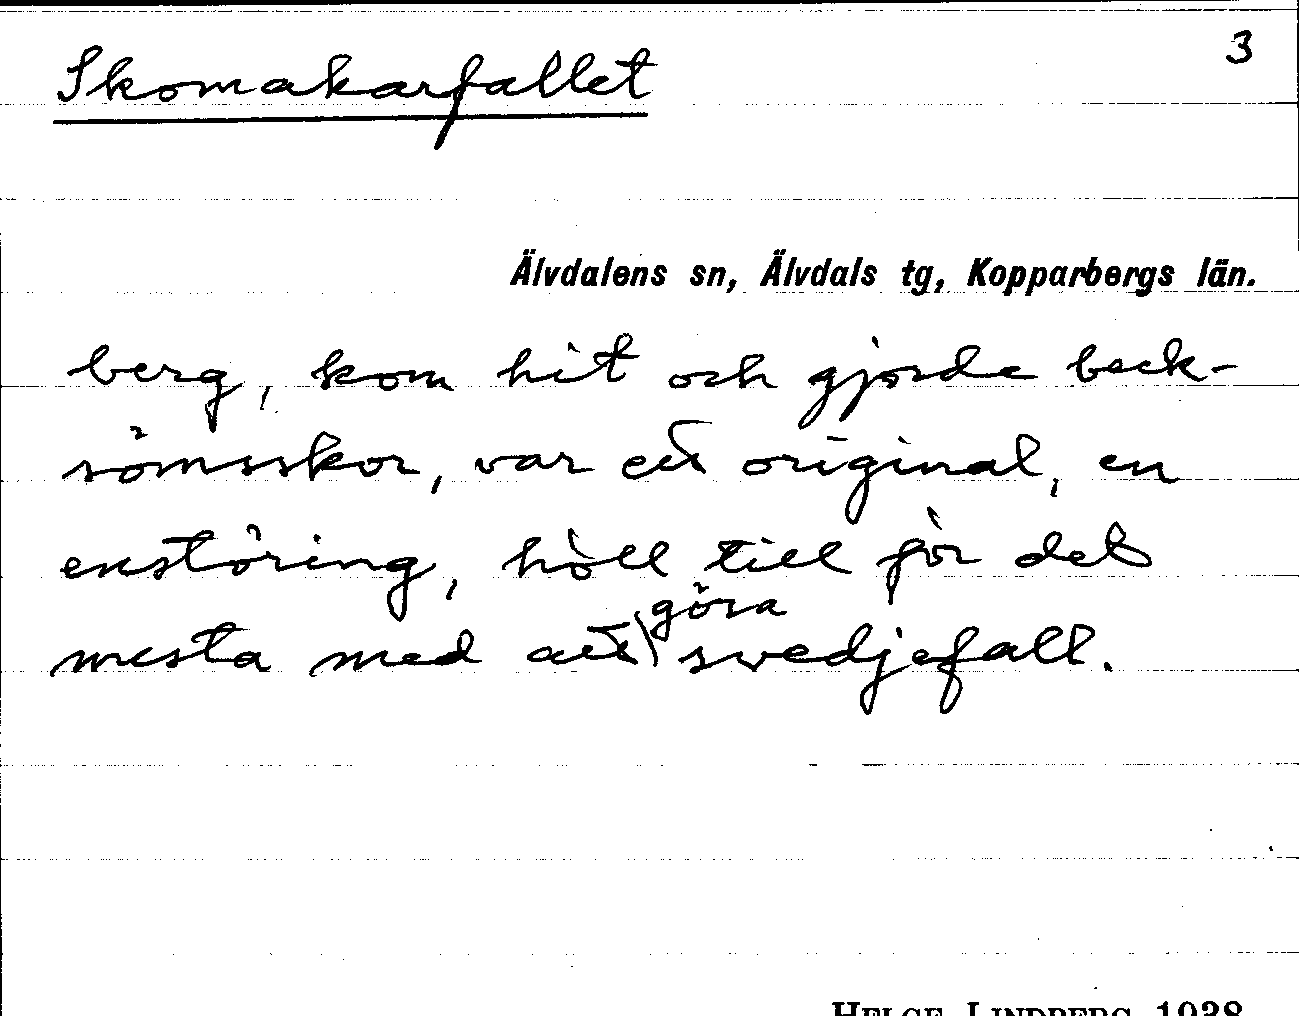 Skomakarfallet 3
Älvdalens sn, Älvdals tg, Kopparbergs län.
berg, kom hit och gjorde beck-
sömsskor, var ett original, en
enstöring, höll till för det
göra
mesta med att svedjefall.
HELGE LINDBERG 1938